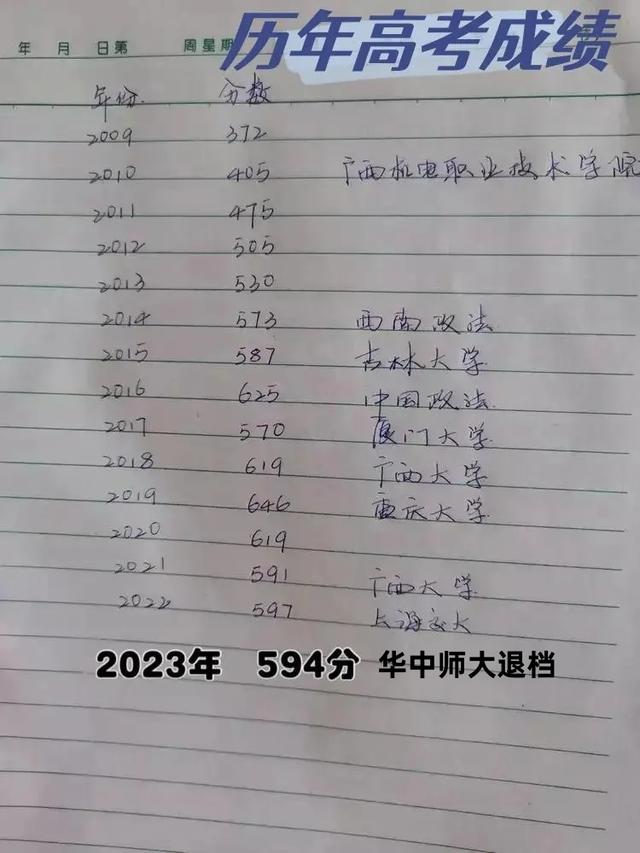 历年高考成绩
年 月 日第 周星期
年份 分数
2009 372
2010 405 广西机电职业技术学院
2011 475
2012 505
2013 530
2014 573 西南政法
2015 587 吉林大学
2016 625 中国政法
2017 570 厦门大学
2018 619 广西大学
2019 646 重庆大学
2020 619
2021 591 广西大学
2022 597 上海交大
2023年 594分 华中师大退档